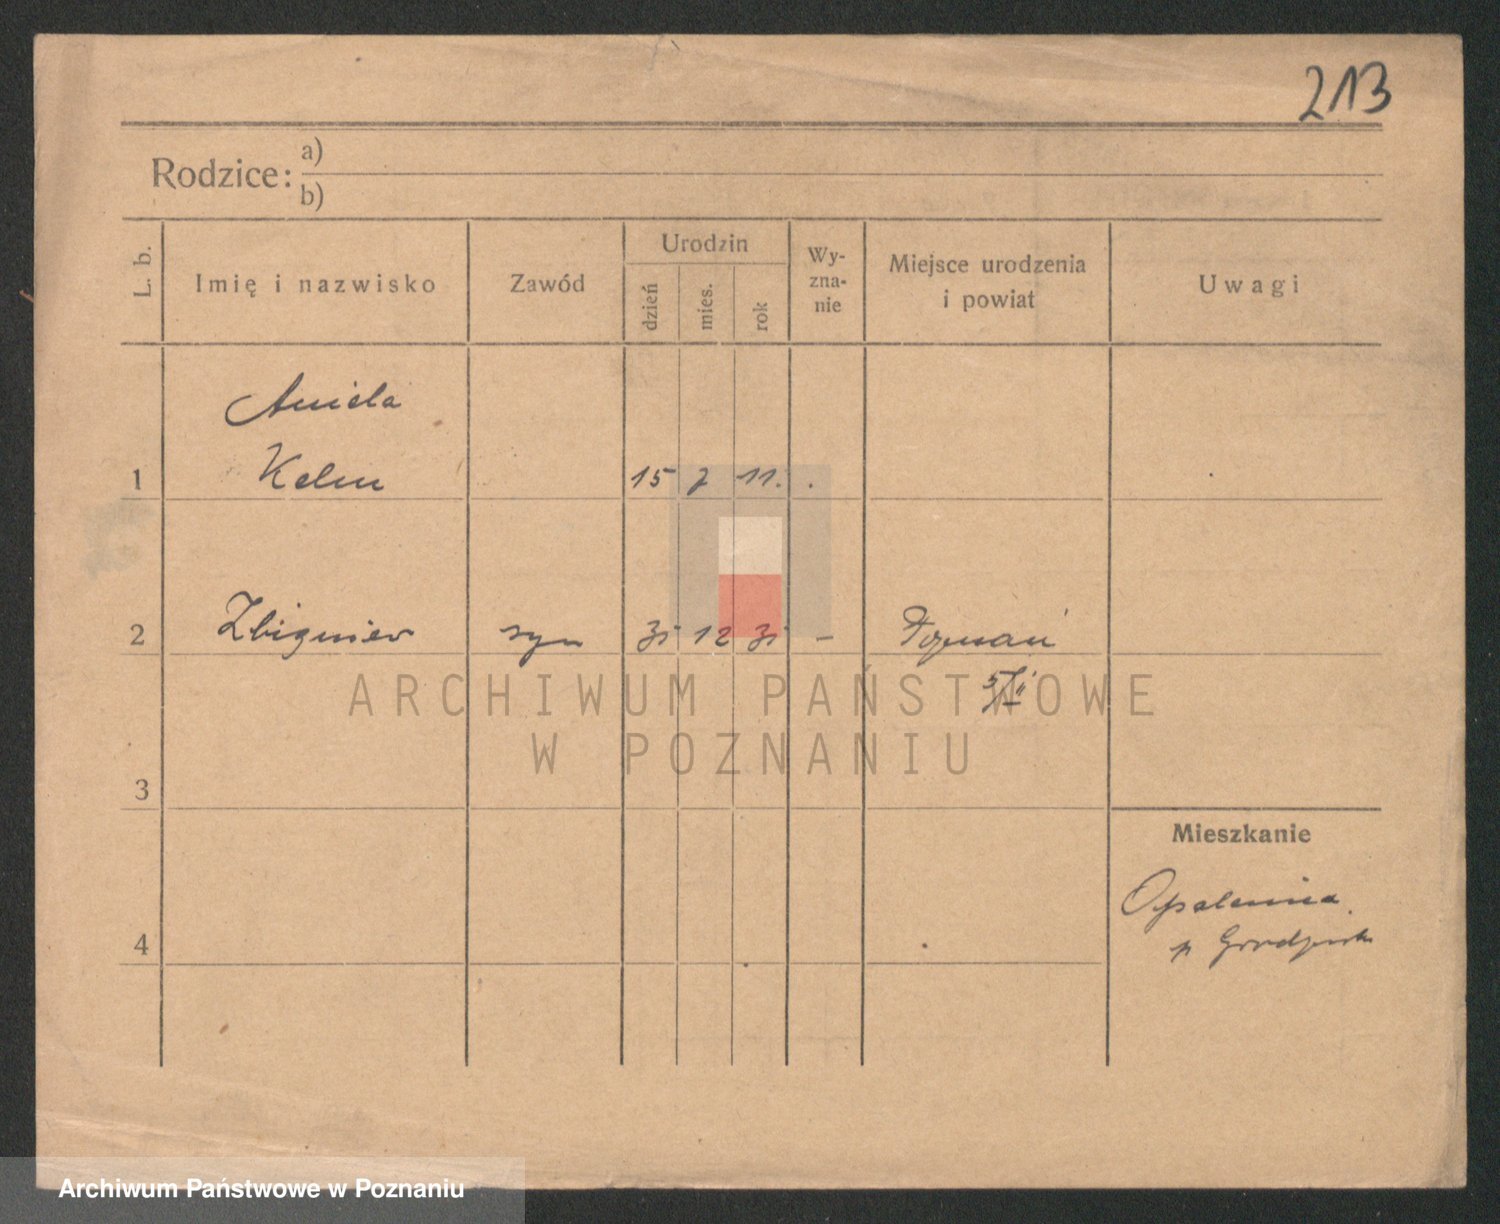 213
Rodzice: a)
b)
L. b. Imię i nazwisko Zawód Urodzin dzień mies. rok Wy-zna-nie Miejsce urodzenia i powiat Uwagi
Aniela
1 Kelm 15 7 11.
2 Zbigniew syn 31 12 31 – Poznań
5/II
ARCHIWUM PAŃSTWOWE
W POZNANIU
3
Mieszkanie
Opalenica
4 p
Archiwum Państwowe w Poznaniu